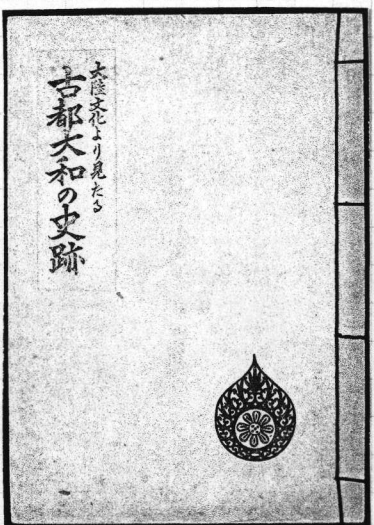 大陸文化より見たる
古都大和の史跡